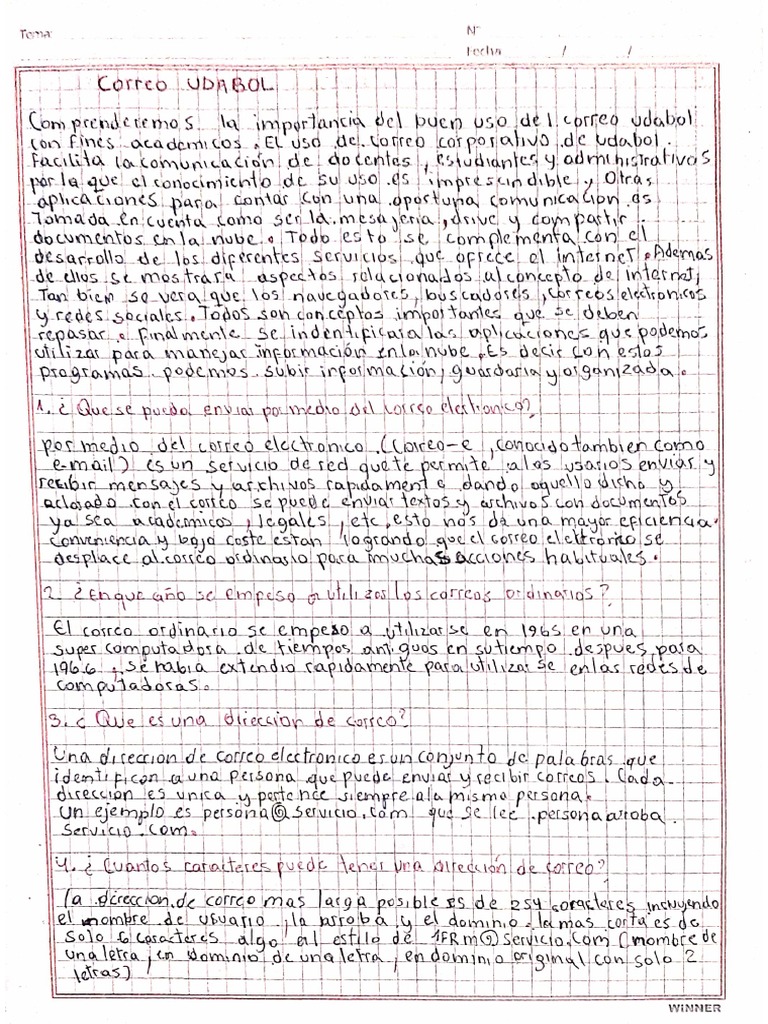 Tema:
N°
Fecha / /
Correo UDABOL
Comprenderemos la importancia del buen uso del correo udabol
con fines academicos. El uso de correo corporativo de udabol.
Facilita la comunicación de docentes, estudiantes y administrativos
por la que el conocimiento de su uso es imprescindible y Otras
aplicaciones para contar con una oportuna comunicacion es
Tomada en cuenta como ser la mesajeria, drive y compartir
documentos en la nube. Todo esto se complementa con el
desarrollo de los diferentes servicios que ofrece el internet. Ademas
de ellos se mostrara aspectos relacionados al concepto de internet,
Tan bien se vera que los navegadores, buscadores, correos electronicos
y redes sociales. Todos son conceptos importantes que se deben
repasar. Finalmente se indentificara las aplicaciones que podemos
utilizar para manejar información en la nube. Es decir con estos
programas podemos subir información, guardarla y organizada.
1. ¿Que se puede enviar por medio del correo electronico?
por medio del correo electronico (Correo-e, conocido tambien como
e-mail) es un servicio de red que te permite a los usarios enviar y
recibir mensajes y archivos rapidamente dando aquello dicho y
aclarado con el correo se puede enviar textos y archivos con documentos
ya sea academicos, legales, etc, esto nos da una mayor eficiencia.
conveniencia y bajo coste estan logrando que el correo electronico se
desplace al correo ordinario para muchas acciones habituales.
2. ¿En que año se empeso a utilizar los correos ordinarios?
El correo ordinario se empeso a utilizarse en 1965 en una
super computadora de tiempos antiguos en su tiempo despues para
1966, se habia extendio rapidamente para utilizarse en las redes de
computadoras.
3. ¿Que es una direccion de correo?
Una direccion de correo electronico es un conjunto de palabras que
identifican a una persona que puede enviar y recibir correos. Cada
direccion es unica y pertence siempre a la misma persona.
Un ejemplo es persona@servicio.com que se lee persona arroba
servicio.com.
4. ¿Cuantos caracteres puede tener una dirección de correo?
la direccion de correo mas larga posible es de 254 caracteres incluyendo
el nombre de usuario, la arroba y el dominio. la mas corta es de
solo 6 caracteres algo al estilo de 1FRm@servicio.com (nombre de
una letra, en dominio de una letra, en dominio original con solo 2
letras)
WINNER